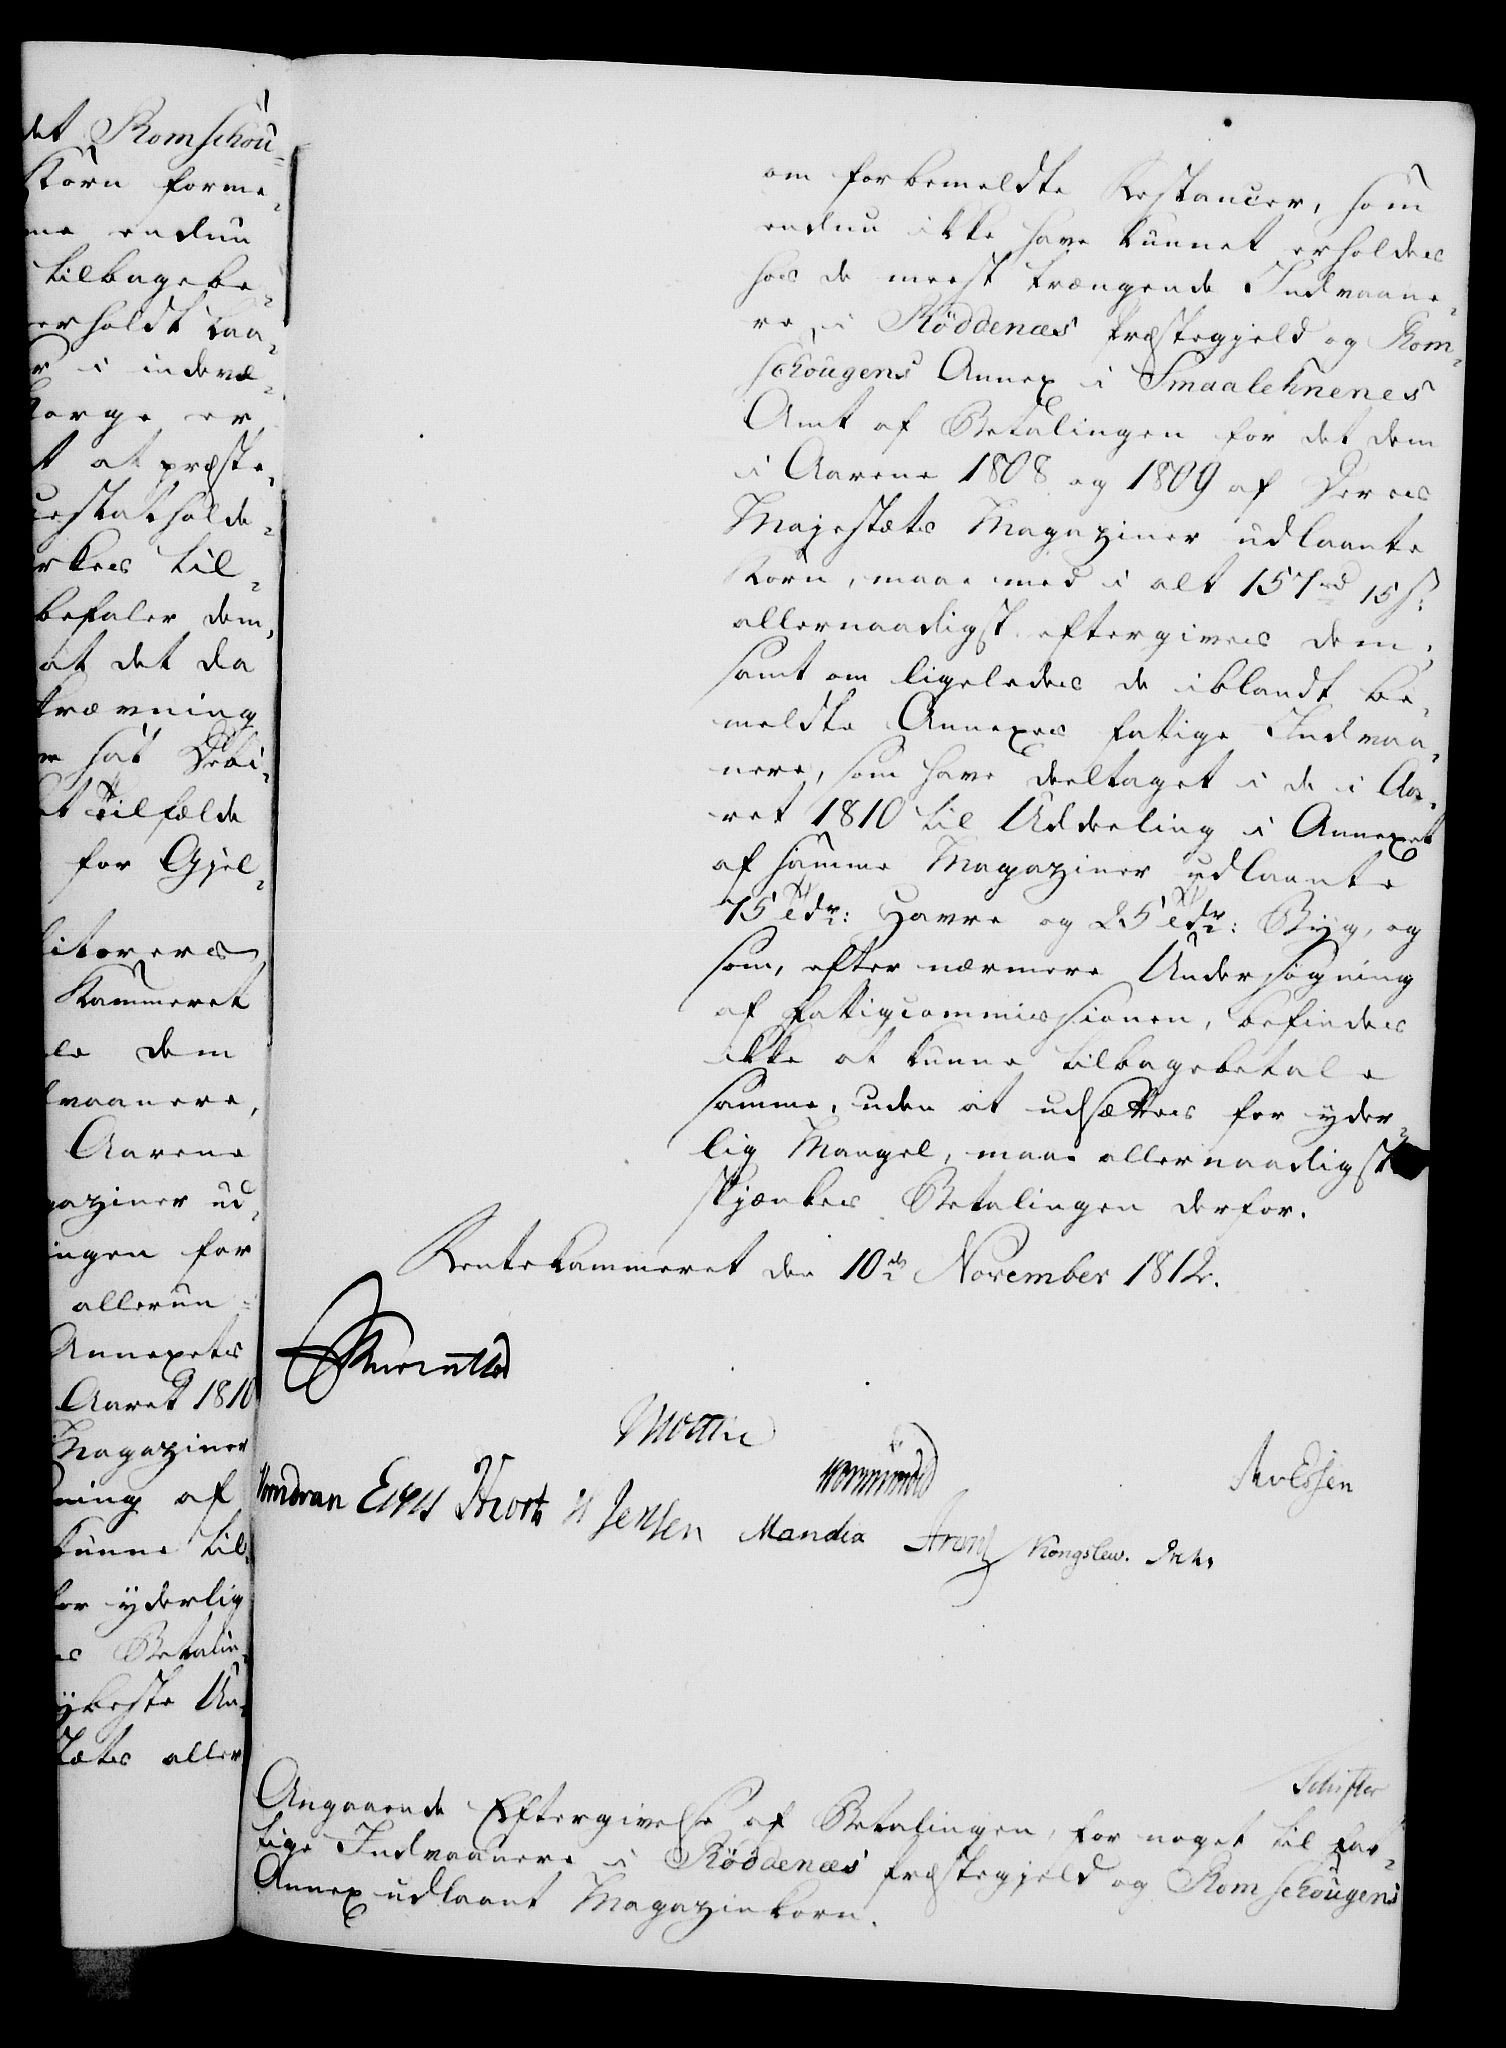 det Romschou-
Korn forme-
me endnu
tilbagebe-
erholdt Laa-
r i indevæ-
Norge er
t at præste-
cestatholde-
rkes til-
befaler dem,
at det da
krævning
m hat Debi-
et Tilfælde
for Gjel-
bitorers
Kammeret
le dem
dvaanere,
Aarene
gaziner ud-
ingen for
allerun-
Annexets
Aaret 1810
Magaziner
ning af
kunne til-
for yderlig
es Betalin-
ybeste Un-
stæts aller
om forbemeldte Restancer, som
endnu ikke have kunnet erholdes
hos de meest trængende Indvaane-
re i Röddenæs Præstegjeld og Rom-
schougens Annex i Smaalehnenes
Amt af Betalingen for det dem
i Aarene 1808 og 1809 af Deres
Majestæts Magaziner udlaante
Korn, maae med i alt 157 rd 15 s:
allernaadigst eftergives dem;
samt om ligeledes de iblandt be-
meldte Annexes fattige Indvaa-
nere, som have deeltaget i de i Aa-
ret 1810 til Uddeeling i Annexet
af samme Magaziner udlaante
75 Tdr: Havre og 25 Tdr: Byg, og
som, efter nærmere Undersøgning
af Fattigcommissionen, befindes
ikke at kunne tilbagebetale
samme, uden at udsættes for yder-
lig Mangel, maae allernaadigst
skjænkes Betalingen derfor.
Rentekammeret den 10de November 1812.
Knuth
Wormskiold
Vondran Hiort H Jensen Mandix Kongslew.
Schifter
Angaaende Eftergivelse af Betalingen for noget til fat-
tige Indvaanere i Röddenæs Præstegjeld og Romschougens
Annex udlaant Magazinkorn.